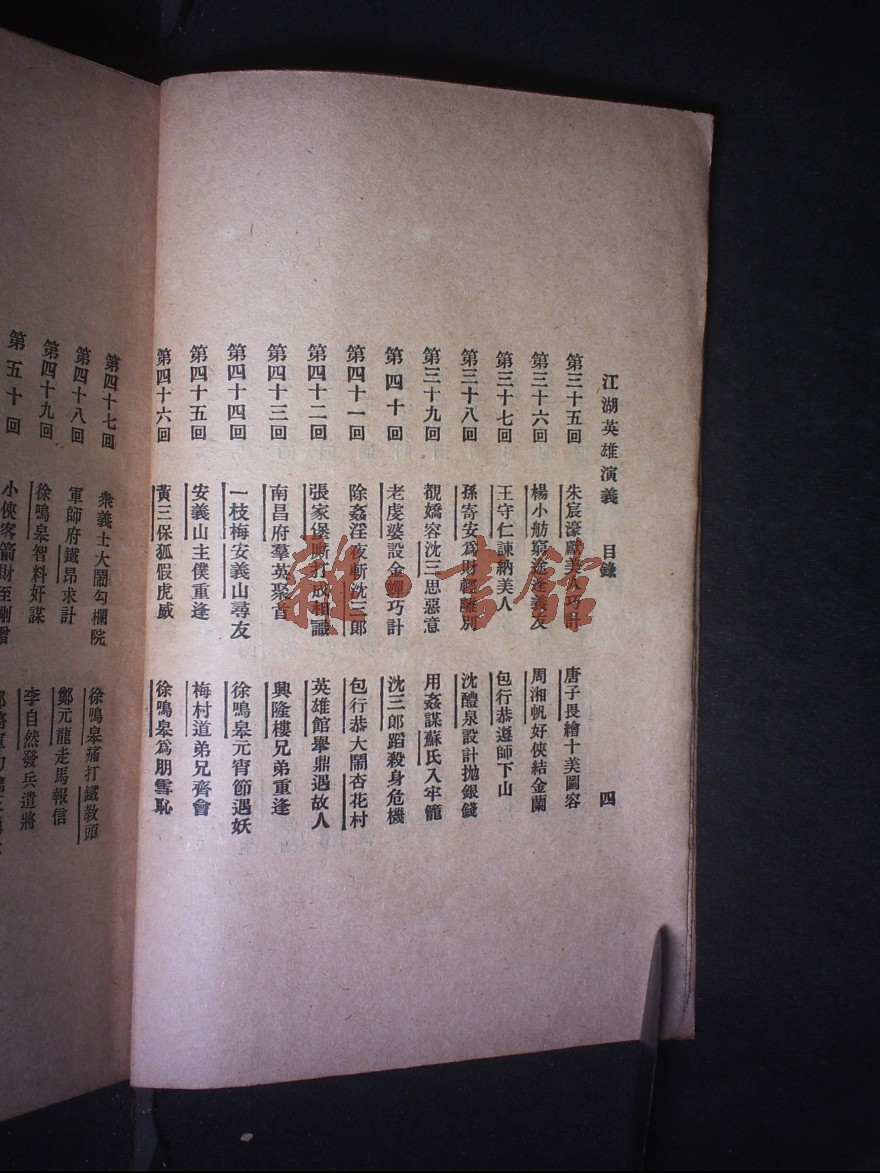 江湖英雄演義 目錄 四
第三十五回 朱宸濠獻美人巧計 唐子畏繪十美圖容
第三十六回 楊小舫窮途逢義友 周湘帆好俠結金蘭
第三十七回 王守仁諫納美人 包行恭遵師下山
第三十八回 孫寄安爲財輕離別 沈醴泉設計拋銀錢
第三十九回 覩嬌容沈三思惡意 用姦謀蘇氏入牢籠
第四十回 老虔婆設金蟬巧計 沈三郎蹈殺身危機
第四十一回 除姦淫夜斬沈三郎 包行恭大鬧杏花村
第四十二回 張家堡廝打成相識 英雄館舉鼎遇故人
第四十三回 南昌府羣英聚首 興隆樓兄弟重逢
第四十四回 一枝梅安義山尋友 徐鳴皋元宵節遇妖
第四十五回 安義山主僕重逢 梅村道弟兄齊會
第四十六回 黃三保狐假虎威 徐鳴皋爲朋雪恥
第四十七回 衆義士大鬧勾欄院 徐鳴皋痛打鐵敎頭
第四十八回 軍師府鐵昂求計 鄭元龍走馬報信
第四十九回 徐鳴皋智料奸謀 李自然發兵遣將
第五十回 小俠客箭
雜·書館